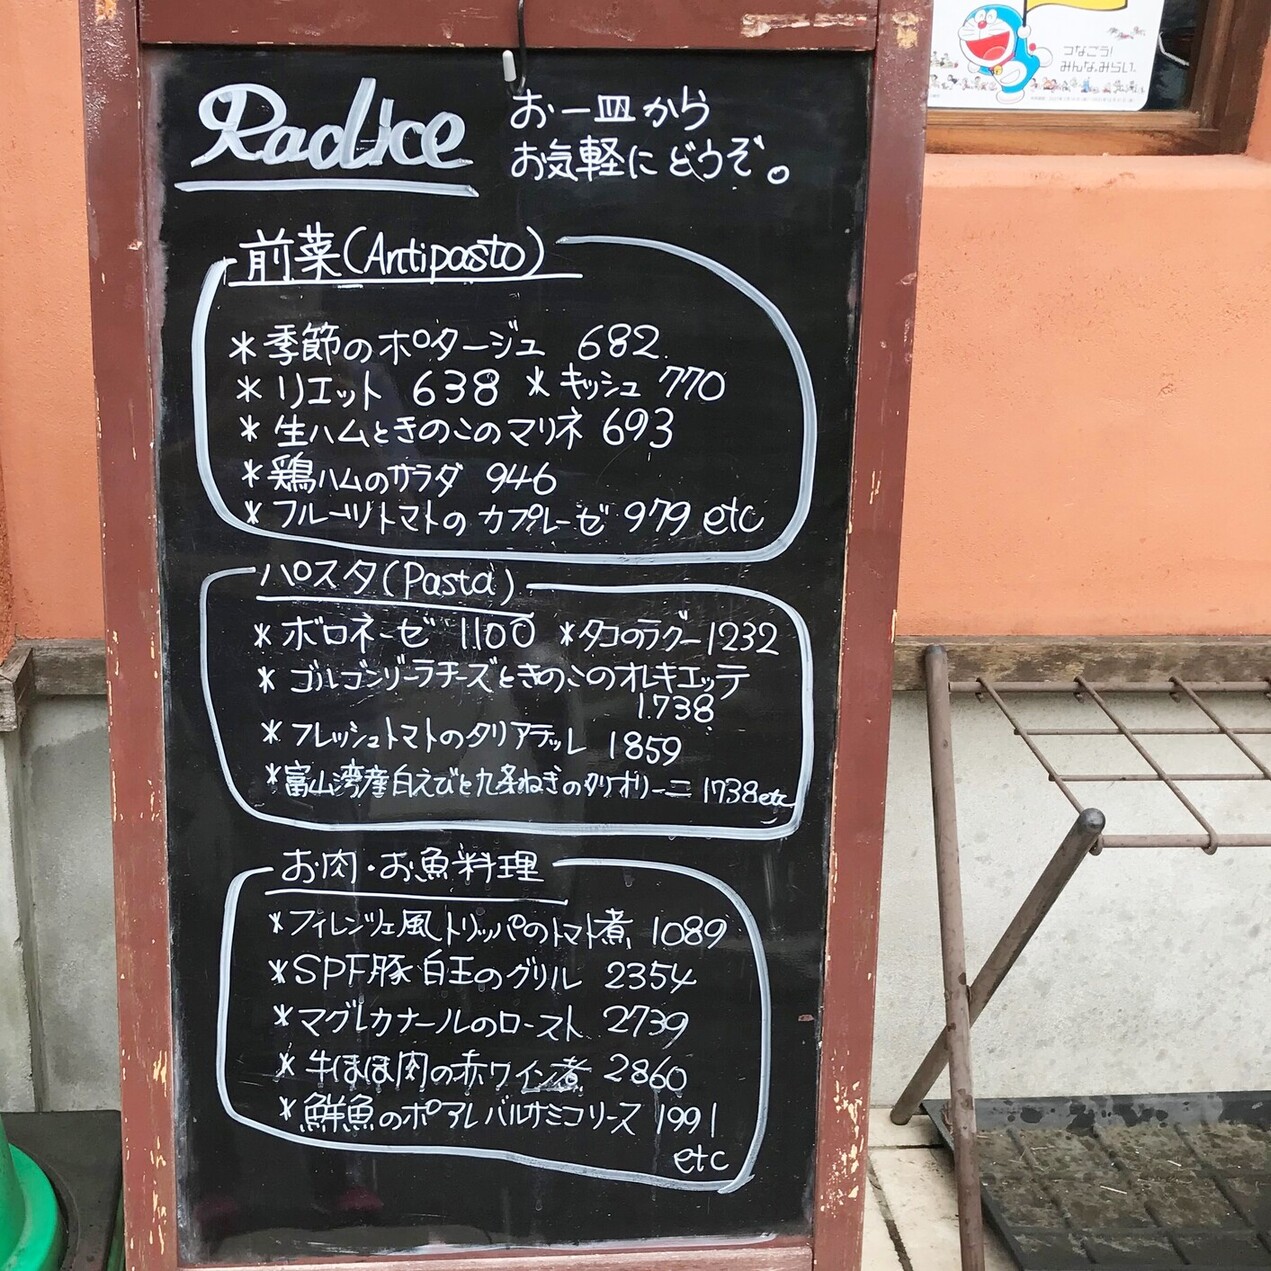 Radice
お一皿から
お気軽にどうぞ。
つなごう!
みんな、みらい。
前菜(Antipasto)
*季節のポタージュ 682
*リエット 638 *キッシュ 770
*生ハムときのこのマリネ 693
*鶏ハムのサラダ 946
*フルーツトマトのカプレーゼ 979 etc
パスタ(Pasta)
*ボロネーゼ 1100 *タコのラグー 1232
*ゴルゴンゾーラチーズときのこのオレキエッテ
1738
*フレッシュトマトのタリアテッレ 1859
*富山湾産白えびと九条ねぎのタリオリーニ 1738 etc
お肉・お魚料理
*フィレンツェ風トリッパのトマト煮 1089
*SPF豚 白王のグリル 2354
*マグレカナールのロースト 2739
*牛ほほ肉の赤ワイン煮 2860
*鮮魚のポアレバルサミコソース 1991
etc